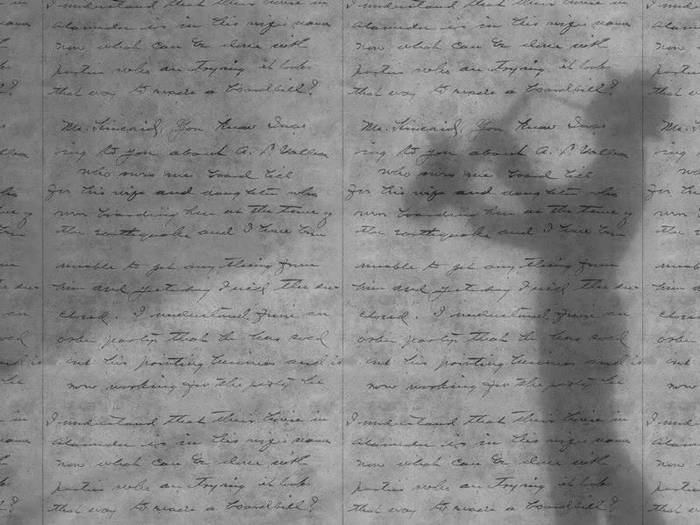 I understand that their house in
Alameda is in his wife's name
Now what can be done with
parties who are trying
that way to a board bill?
Mr. Kincaid, You know I was
ing to you about A. P.
who owes me board bill
for his wife and daughter who
were boarding here at the time of
the earthquake and I have been
unable to get any thing from
him and yesterday I find the
closed. I understand from an
other party that he has sold
out his printing business and is
now working for the party he
I understand that their house in
Alameda is in his wife's name
Now what can be done with
parties who are trying
that way to a board bill?
I understand that their house in
Alameda is in his wife's name
Now what can be done with
parties who are trying
that way to a board bill?
Mr. Kincaid, You know I was
ing to you about A. P.
who owes me board bill
for his wife and daughter who
were boarding here at the time of
the earthquake and I have been
unable to get any thing from
him and yesterday I find the
closed. I understand from an
other party that he has sold
out his printing business and is
now working for the party he
I understand that their house in
Alameda is in his wife's name
Now what can be done with
parties who are trying
that way to a board bill?